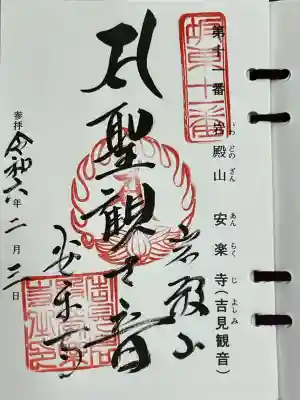 第十一番 岩殿山 安楽寺(吉見観音)
いわ どの さん あん らく じ よしみ
坂東十一番
岩殿山
聖観世音
安楽寺
参拝 令和六年二月三日